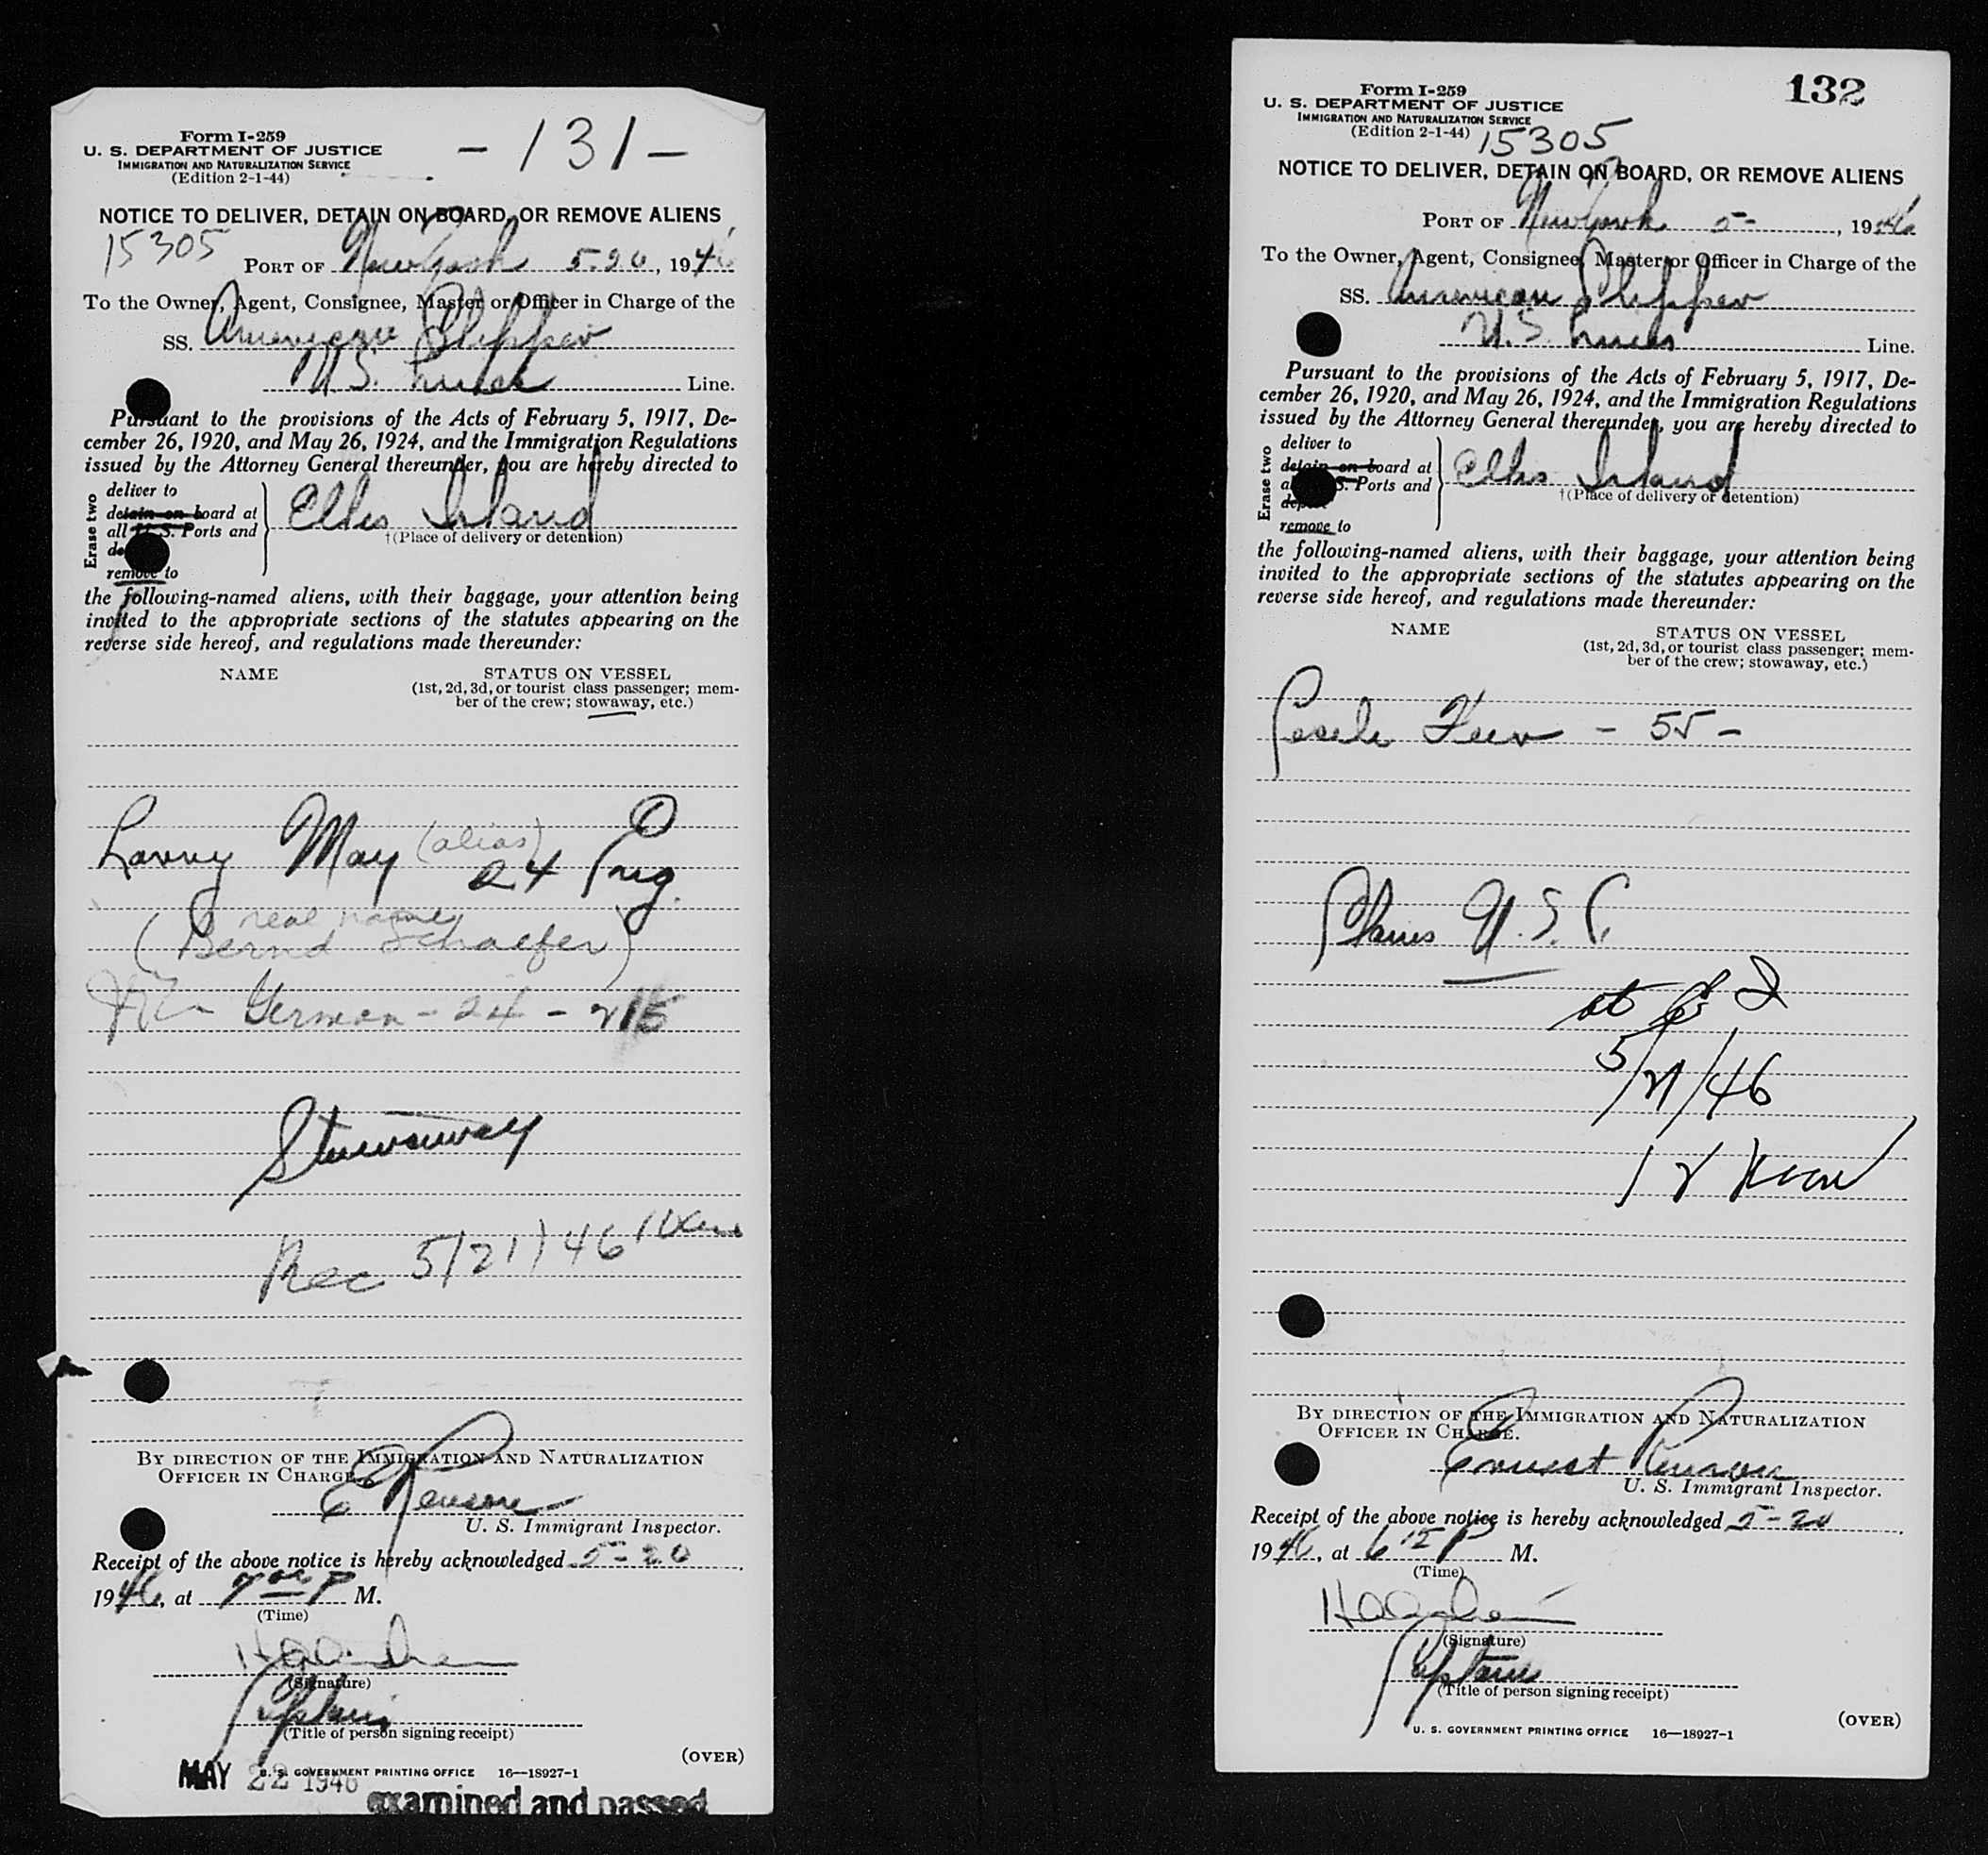 Form I-259
U. S. DEPARTMENT OF JUSTICE
IMMIGRATION AND NATURALIZATION SERVICE
(Edition 2-1-44)
- 131 -
NOTICE TO DELIVER, DETAIN ON BOARD, OR REMOVE ALIENS
15305
PORT OF New York 5-20, 1946
To the Owner, Agent, Consignee, Master or Officer in Charge of the
SS. American Shipper
U.S. Lines Line.
Pursuant to the provisions of the Acts of February 5, 1917, De-
cember 26, 1920, and May 26, 1924, and the Immigration Regulations
issued by the Attorney General thereunder, you are hereby directed to
Erase two
deliver to
detain on board at
all U.S. Ports and
remove to
Ellis Island
†(Place of delivery or detention)
the following-named aliens, with their baggage, your attention being
invited to the appropriate sections of the statutes appearing on the
reverse side hereof, and regulations made thereunder:
NAME
STATUS ON VESSEL
(1st, 2d, 3d, or tourist class passenger; mem-
ber of the crew; stowaway, etc.)
Larry May (alias) 24
real name
(Bernd Schaefer)
German - 24 -
Stowaway
Rec 5/21/46
BY DIRECTION OF THE IMMIGRATION AND NATURALIZATION
OFFICER IN CHARGE.
U. S. Immigrant Inspector.
Receipt of the above notice is hereby acknowledged 5-20
1946, at P M.
(Time)
(Signature)
Captain
(Title of person signing receipt)
(OVER)
U. S. GOVERNMENT PRINTING OFFICE 16—18927-1
MAY 22 1946
examined and passed
Form I-259
U. S. DEPARTMENT OF JUSTICE
IMMIGRATION AND NATURALIZATION SERVICE
(Edition 2-1-44)
132
15305
NOTICE TO DELIVER, DETAIN ON BOARD, OR REMOVE ALIENS
PORT OF New York 5-, 1946
To the Owner, Agent, Consignee, Master or Officer in Charge of the
SS. American Shipper
U.S. Lines Line.
Pursuant to the provisions of the Acts of February 5, 1917, De-
cember 26, 1920, and May 26, 1924, and the Immigration Regulations
issued by the Attorney General thereunder, you are hereby directed to
Erase two
deliver to
detain on board at
S. Ports and
remove to
Ellis Island
†(Place of delivery or detention)
the following-named aliens, with their baggage, your attention being
invited to the appropriate sections of the statutes appearing on the
reverse side hereof, and regulations made thereunder:
NAME
STATUS ON VESSEL
(1st, 2d, 3d, or tourist class passenger; mem-
ber of the crew; stowaway, etc.)
- 55 -
Claims U.S.C.
at
5/21/46
BY DIRECTION OF THE IMMIGRATION AND NATURALIZATION
OFFICER IN CHARGE.
Ernest
U. S. Immigrant Inspector.
Receipt of the above notice is hereby acknowledged 5-20
1946, at 6 15 P M.
(Time)
(Signature)
Captain
(Title of person signing receipt)
(OVER)
U. S. GOVERNMENT PRINTING OFFICE 16—18927-1